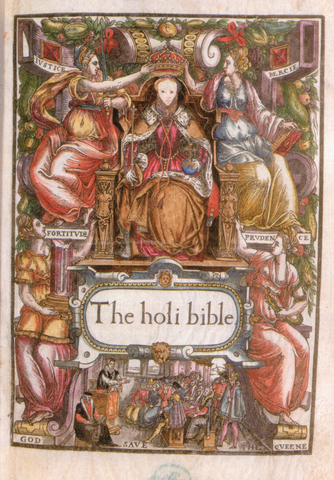 IVSTICE
MERCIE
FORTITVDE
PRVDENCE
The holi bible
GOD SAVE THE QVEENE